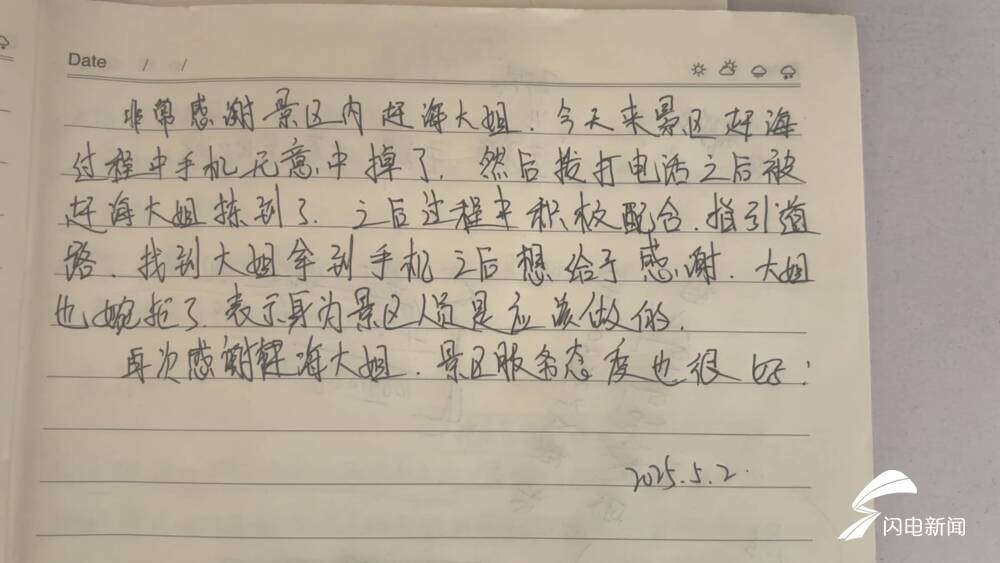 Date / /
非常感谢景区内赶海大姐.今天来景区赶海
过程中手机无意中掉了.然后拨打电话之后被
赶海大姐拣到了.之后过程中积极配合.指引道
路.找到大姐拿到手机之后想给于感谢.大姐
也婉拒了.表示身为景区人员是应该做的.
再次感谢赶海大姐.景区服务态度也很好!
2025.5.2.
闪电新闻